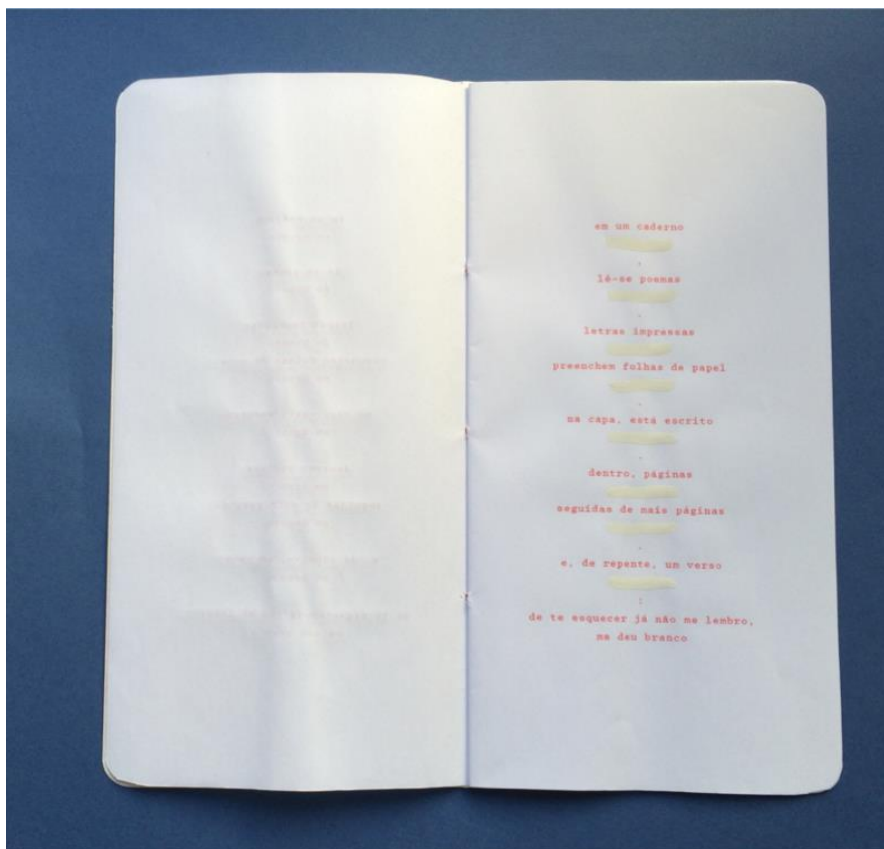 em um caderno
.
lê-se poemas
.
letras impressas
preenchem folhas de papel
.
na capa, está escrito
.
dentro, páginas
seguidas de mais páginas
.
e, de repente, um verso
:
de te esquecer já não me lembro,
me deu branco